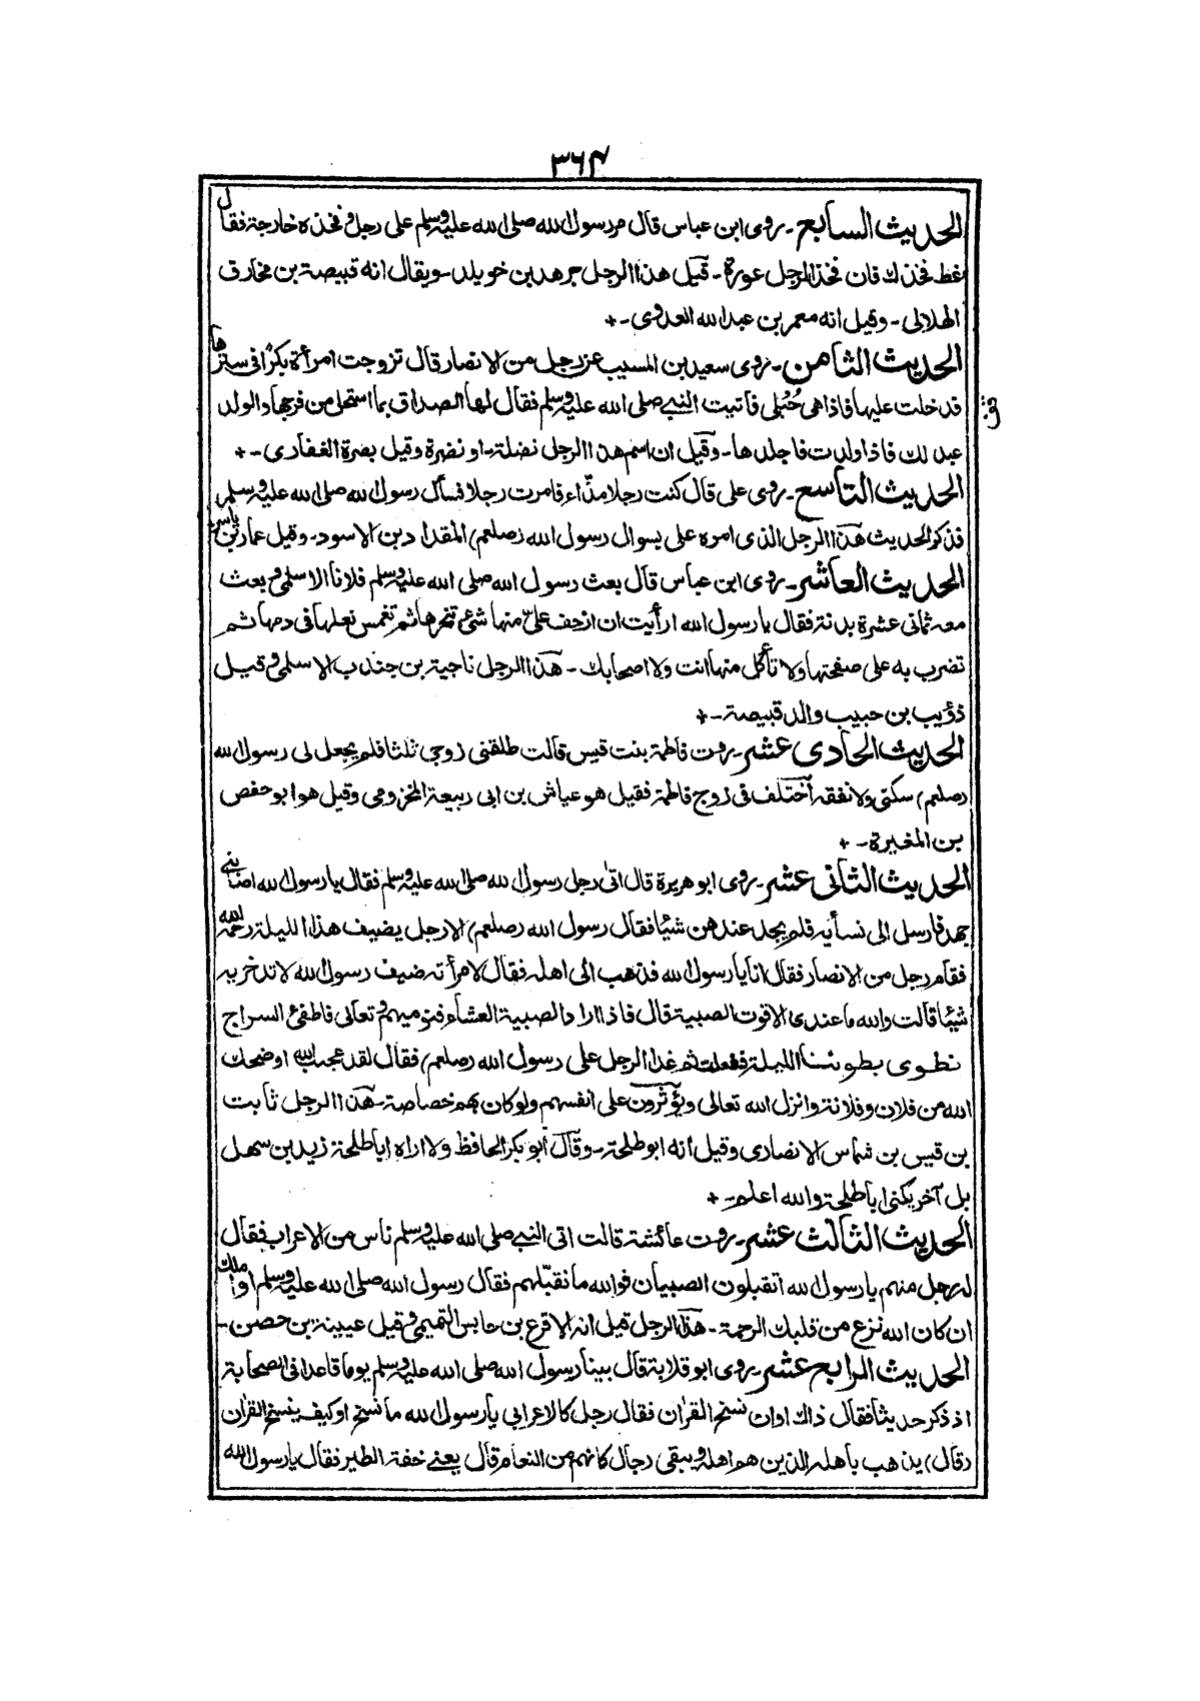 ۳۶۴
الحديث السابع۔ روى ابن عباس قال مر رسول الله صلى الله عليه وسلم على رجل وفخذه خارجة فقال
غط فخذك فان فخذ الرجل عورة۔ قيل هذا الرجل جرهد بن خويلد۔ ويقال انه قبيصة بن مخارق
الهلالى۔ وقيل انه معمر بن عبدالله العدوى۔+
الحديث الثامن۔ روى سعيد بن المسيب عن رجل من الانصار قال تزوجت امرأة بكرًا فى سترها
فدخلت عليها فاذا هى حُبْلى فاتيت النبى صلى الله عليه وسلم فقال لها الصداق بما استحل من فرجها والولد
عبد لك فاذا ولدت فاجلدها۔ وقيل ان اسم هذا الرجل نضلة۔ او نضرة وقيل بصرة الغفارى۔+
الحديث التاسع۔ روى على قال كنت رجلا مذّاء فامرت رجلا فسأل رسول الله صلى الله عليه وسلم
فذكر الحديث هذا الرجل الذى امره على بسوال رسول الله (صلعم) المقداد بن الاسود۔ وقيل عمار بن ياسر
الحديث العاشر۔ روى ابن عباس قال بعث رسول الله صلى الله عليه وسلم فلانا الاسلمى وبعث
معه ثمانى عشرة بدنة فقال يا رسول الله ارأيت ان ازحف علىّ منها شئ قال تنحرها ثم تغمس نعلها فى دمها ثم
تضرب به على صفحتها ولا تأكل منها انت ولا اصحابك۔ هذا الرجل ناجية بن جندب الاسلمى وقيل
ذؤيب بن حبيب والد قبيصة۔+
الحديث الحادى عشر۔ روت فاطمة بنت قيس قالت طلقنى زوجى ثلثا فلم يجعل لى رسول الله
(صلعم) سكنى ولا نفقه اختلف فى زوج فاطمة فقيل هو عياش بن ابى ربيعة المخزومى وقيل هو ابو حفص
بن المغيرة۔+
الحديث الثانى عشر۔ روى ابو هريرة قال اتى رجل رسول الله صلى الله عليه وسلم فقال يا رسول الله اصابنى
جهد فارسل الى نسأيه فلم يجد عندهن شيئا فقال رسول الله (صلعم) الا رجل يضيف هذا الليلة رحمه الله
فقام رجل من الانصار فقال انا يا رسول الله فذهب الى اهله فقال لامرأته ضيف رسول الله لا تدخريه
شيئا قالت والله ما عندى الا قوت الصبية قال فاذا اراد الصبية العشاء فنوميهم وتعالى فاطفئ السراج
نطوى بطوننا الليلة ففعلت ثم غدا الرجل على رسول الله (صلعم) فقال لقد عجب الله اوضحك
الله من فلان وفلانة وانزل الله تعالى ويؤثرون على انفسهم ولو كان بهم خصاصة۔ هذا الرجل ثابت
بن قيس بن شماس الانصارى وقيل انه ابو طلحة۔ وقال ابو بكر الحافظ ولا اراه اباطلحة زيد بن سهل
بل آخر يكنى اباطلحة والله اعلم۔+
الحديث الثالث عشر۔ روت عائشة قالت اتى النبى صلى الله عليه وسلم ناس من الاعراب فقال
له رجل منهم يا رسول الله اتقبلون الصبيان فوالله ما نقبّلهم فقال رسول الله صلى الله عليه وسلم او املك
ان كان الله نزع من قلبك الرحمة۔ هذا الرجل قيل انه الاقرع بن حابس التميمى وقيل عيينة بن حصن۔
الحديث الرابع عشر۔ روى ابو قلابة قال بينا رسول الله صلى الله عليه وسلم يوما قاعدا فى الصحابة
اذ ذكر حديثا فقال ذاك اوان نسخ القرآن فقال رجل كالاعرابى يا رسول الله ما نسخ او كيف ينسخ القرآن
(قال) يذهب باهله الذين هو اهله ويبقى رجال كانهم من النعام قال يعنى خفة الطير فقال يا رسول الله